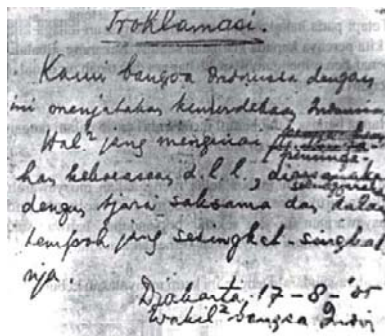 Proklamasi.
Kami bangsa Indonesia dengan
ini menjatakan kemerdekaan Indonesia
Hal² jang mengenai
pemindahan
kan kekoeasaan d.l.l., diselenggarakan
dengan tjara saksama dan dalam
tempoh jang sesingkat-singkat
nja.
Djakarta, 17 - 8 - '05
Wakil² bangsa Indon